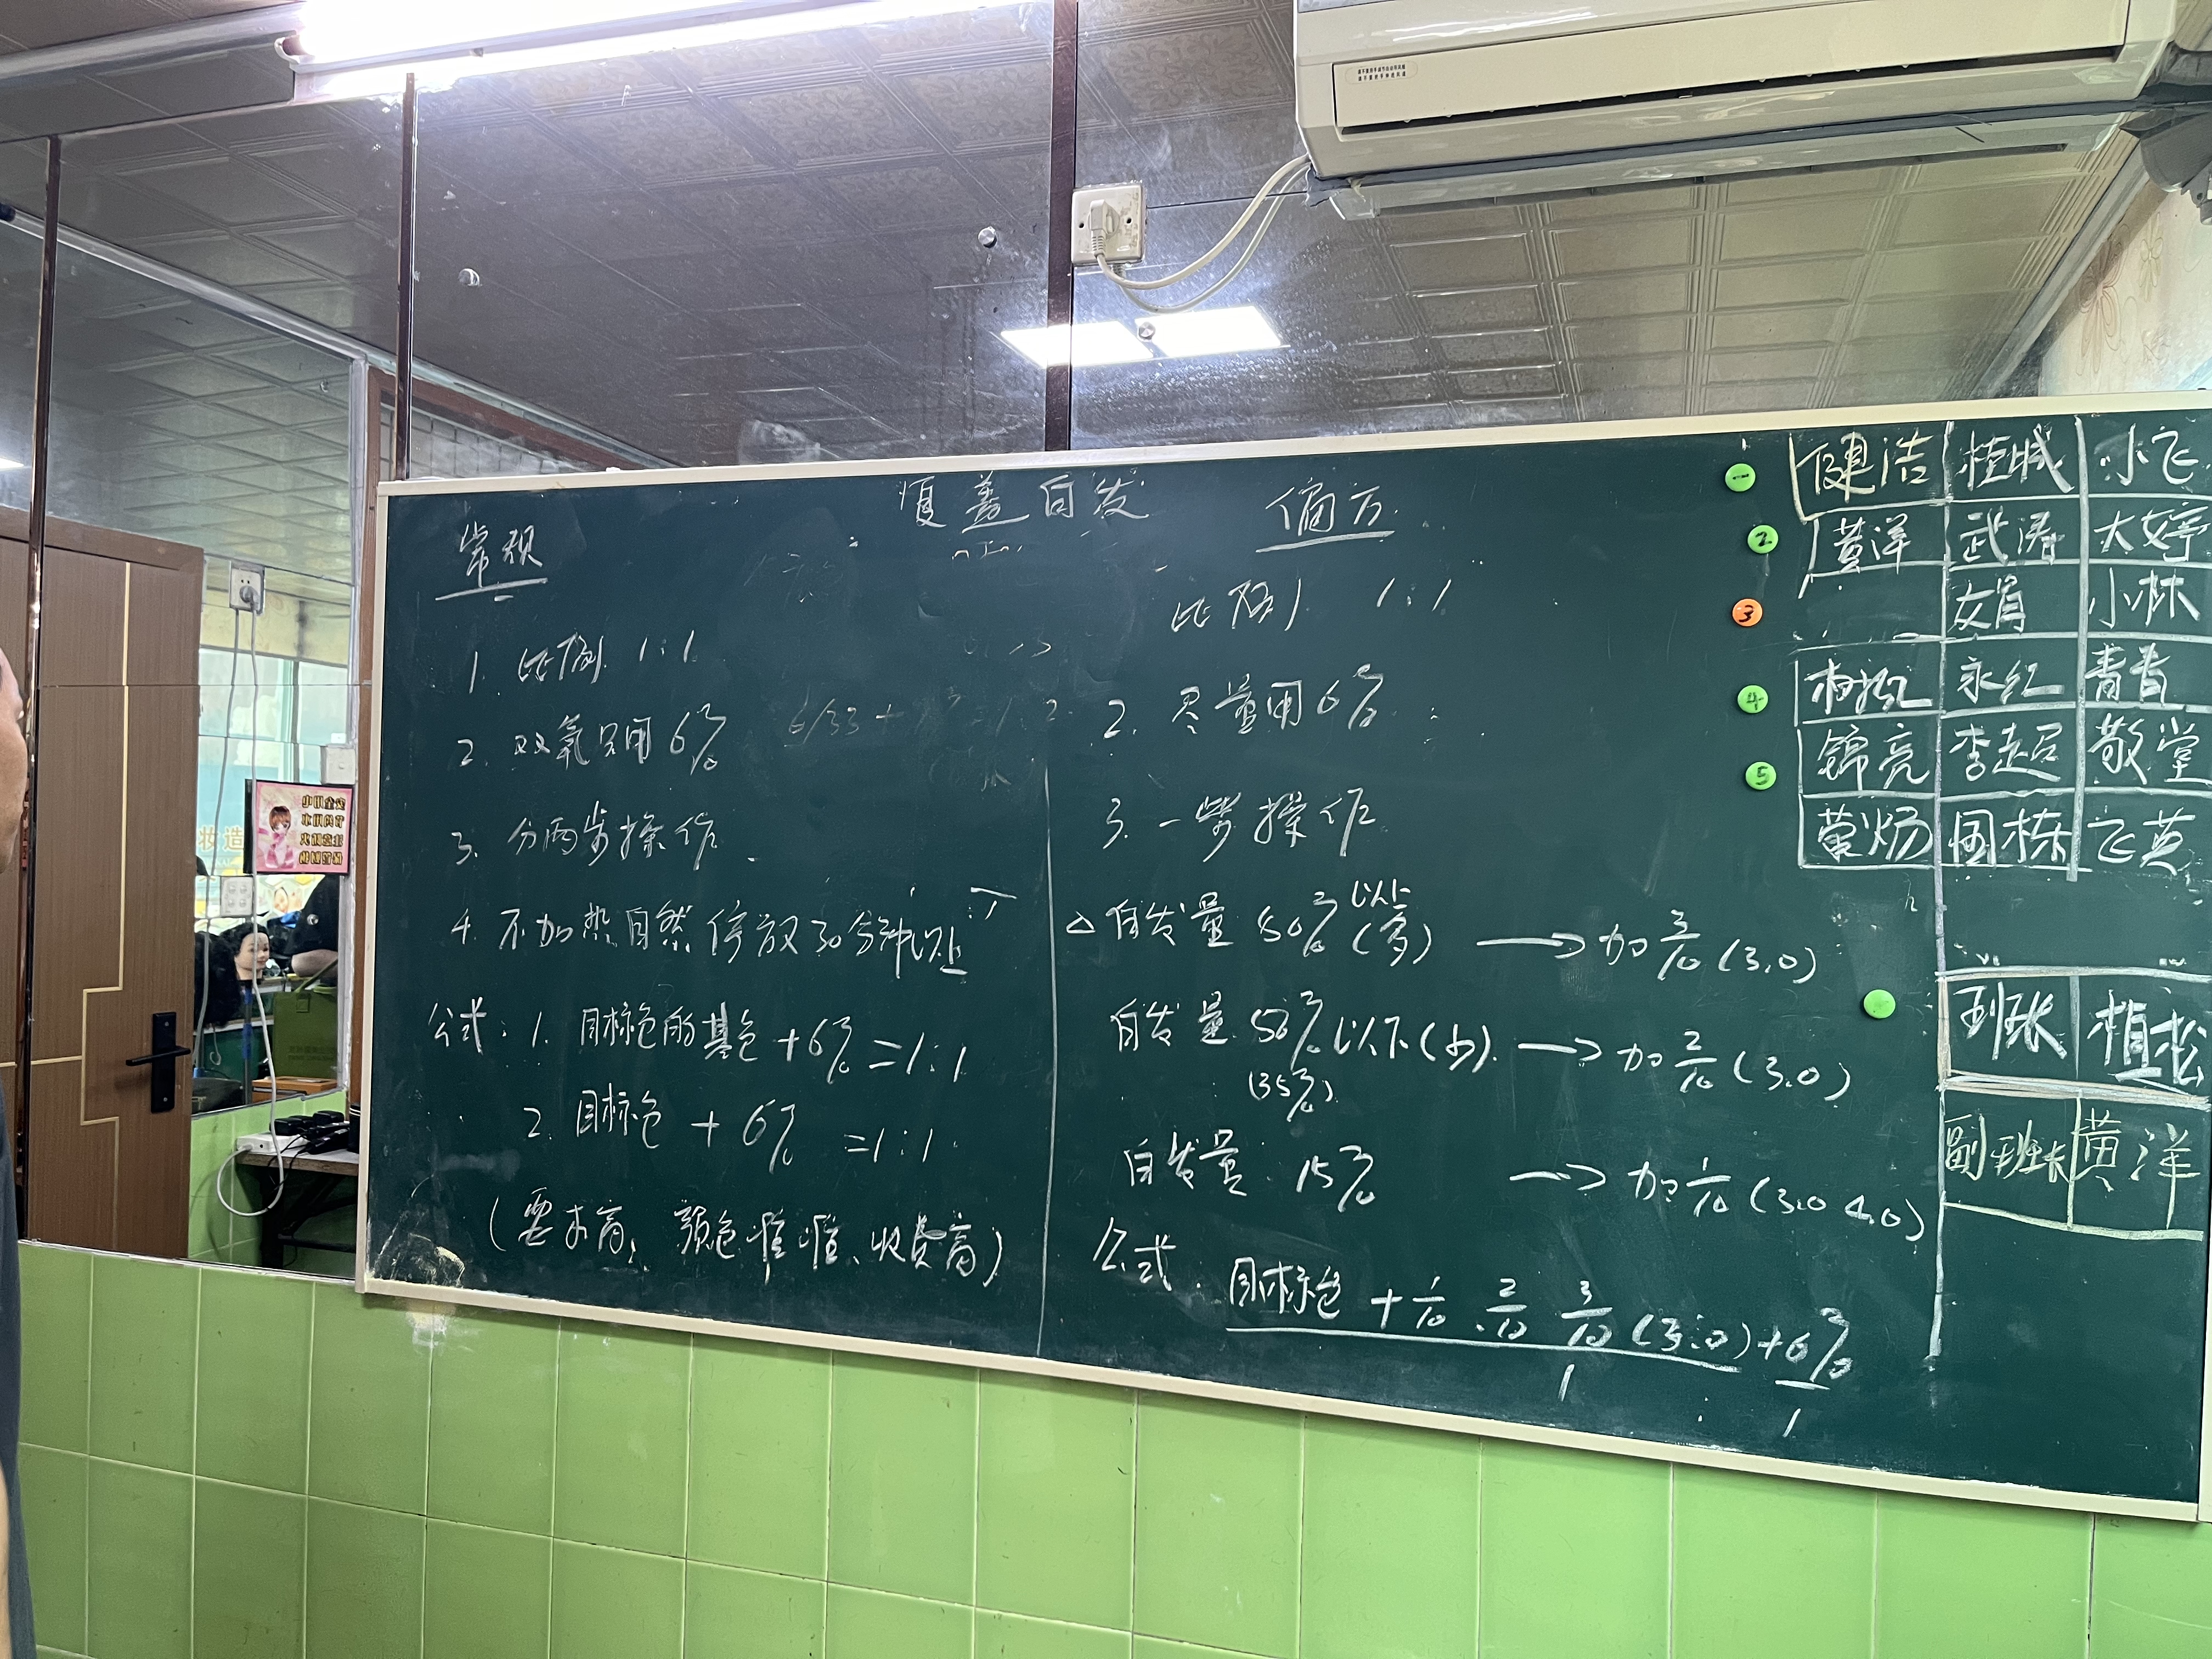 覆盖白发
常规
1. 比例 1:1
2. 双氧只用6%
3. 分两步操作
4. 不加热自然停放30分钟以上
公式: 1. 目标色的基色 + 6% = 1:1
2. 目标色 + 6% = 1:1
(要求高、颜色准确、收费高)
偏方
比例 1:1
2. 尽量用6%
3. 一步操作
△白发量 50% 以上(多) → 加 3/10 (3.0)
白发量 50% 以下(少) → 加 2/10 (3.0)
(35%)
白发量 15% → 加 1/10 (3.0 4.0)
公式: 目标色 + 1/10 、2/10 3/10 (3.0) + 6%
1 : 1
健洁 桂城 小飞
2 黄洋 武涛 大婷
3 小林
4 永红 青青
5 锦亮 李超 敬堂
国栋 飞英
班长 植松
副班长 黄洋
妆造